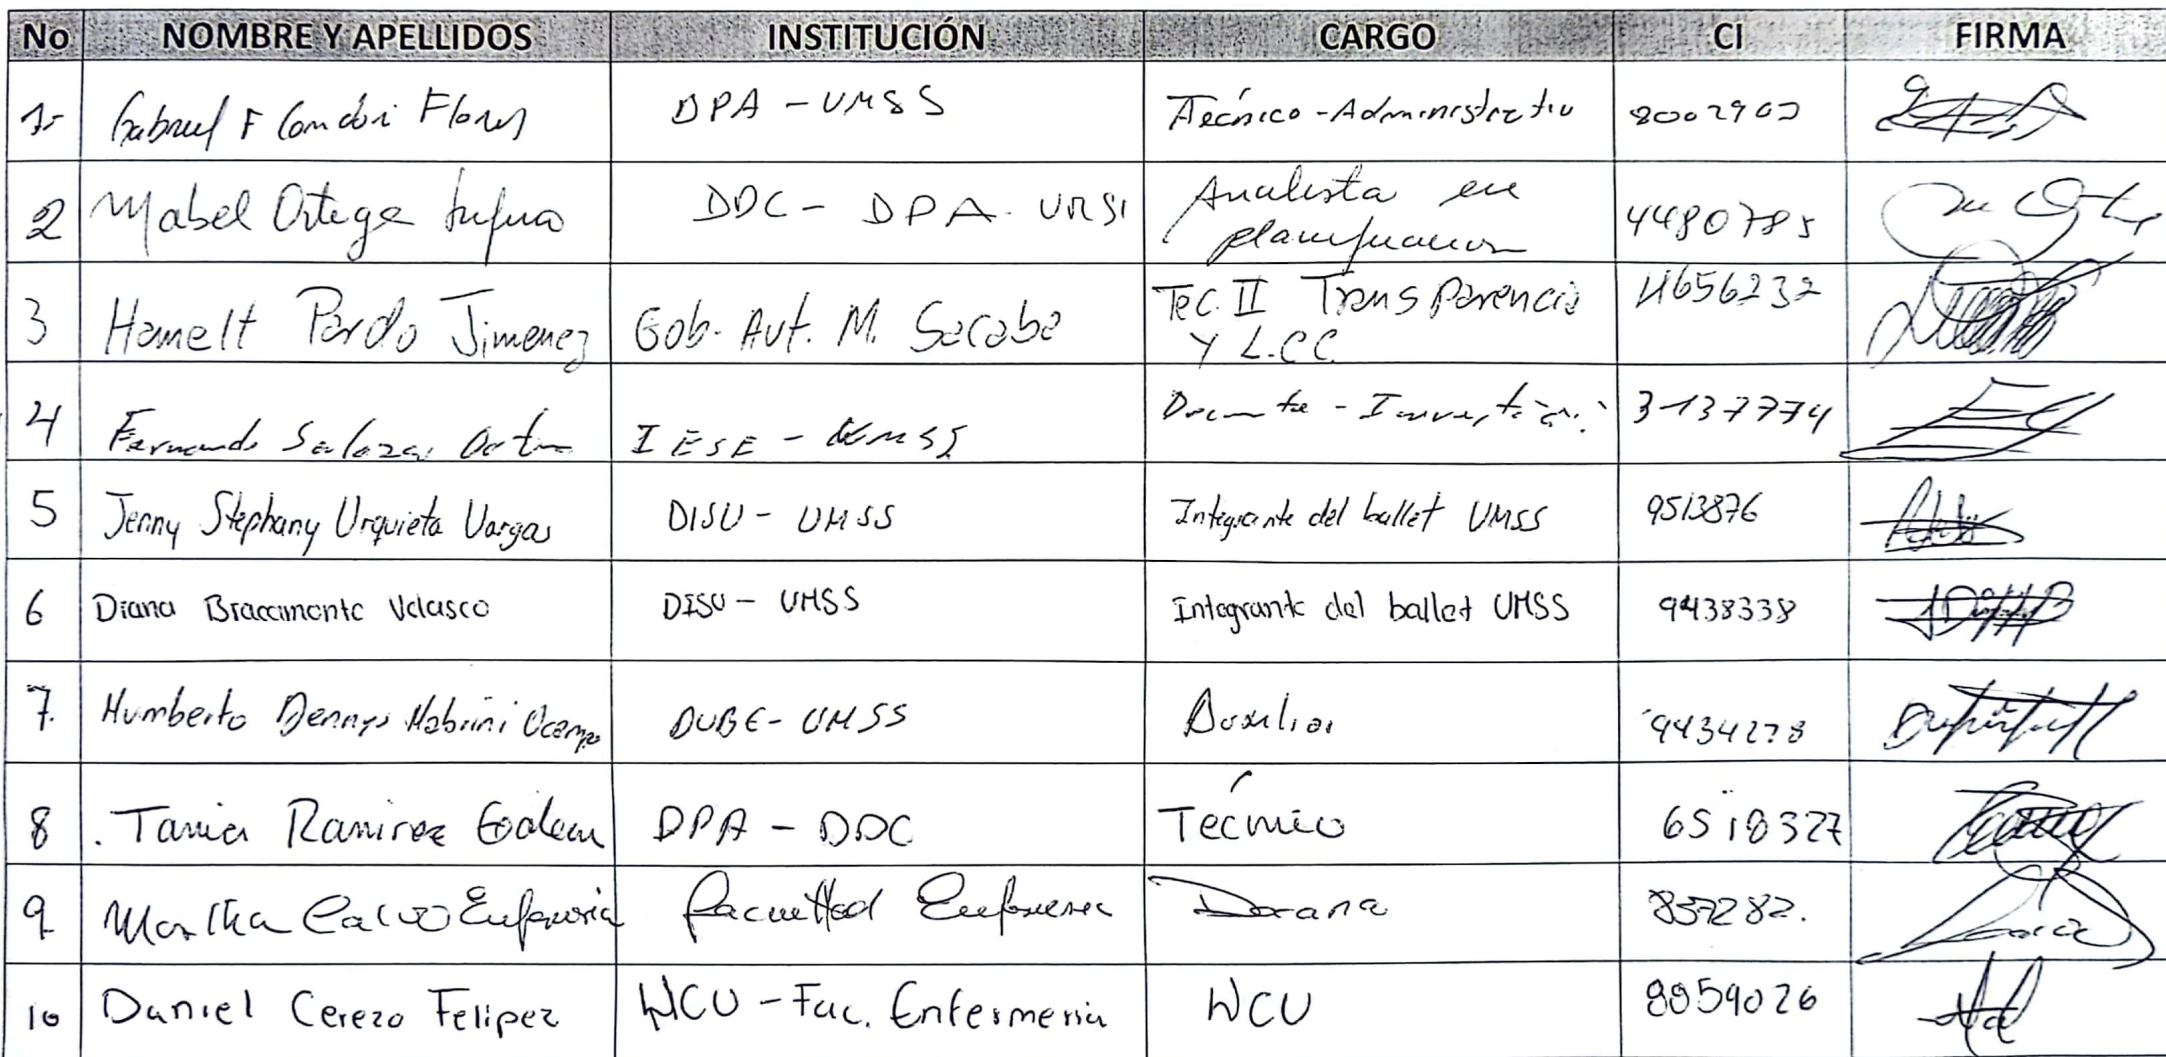 No NOMBRE Y APELLIDOS INSTITUCIÓN CARGO CI FIRMA
1- Gabriel F Condori Flores DPA - UMSS Técnico - Administrativo 8002902
2 Mabel Ortega DDC - DPA. UMSS Analista en planificacion 4480785
3 Hamelt Pardo Jimenez Gob. Aut. M. Sacaba Tec. II Transparencia
Y L.CC. 4656232
4 Fernando Salazar IESE - UMSS Docente - 3137774
5 Jenny Stephany Urquieta Vargas DISU - UMSS Integrante del ballet UMSS 9513876
6 Diana Bracamonte Velasco DISU - UMSS Integrante del ballet UMSS 9438338
7. Humberto Dennys Mabrini Ocampo DUBE - UMSS Auxiliar 9434278
8 Tania Ramirez DPA - DDC Técnico 6518327
9 Martha Calvo Facultad Decana 837282.
10 Daniel Cerezo Felipez WCU - Fac. Enfermeria WCU 8059026